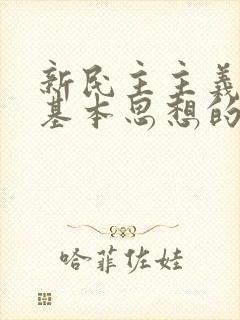 新民主主義
基本思想的
哈菲佐娃